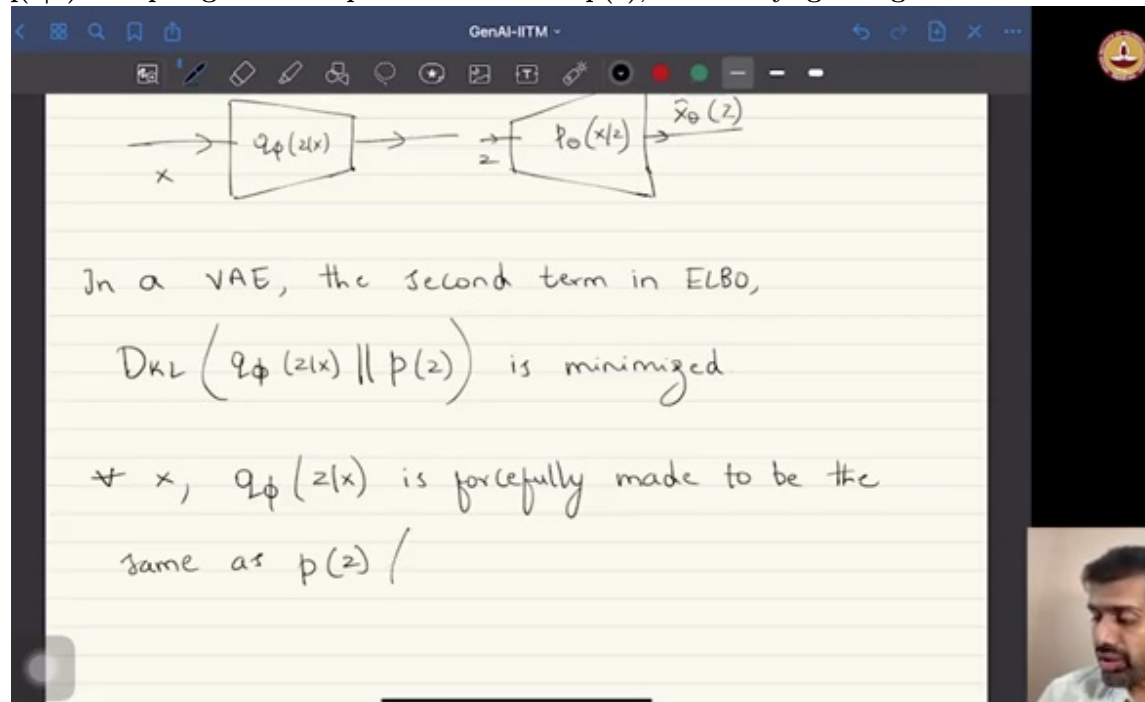 GenAI-IITM
x
qϕ(z|x)
z
pθ(x|z)
x̂θ(z)
In a VAE, the second term in ELBO,
DKL (qϕ(z|x) || p(z)) is minimized
∀ x, qϕ(z|x) is forcefully made to be the
same as p(z) (